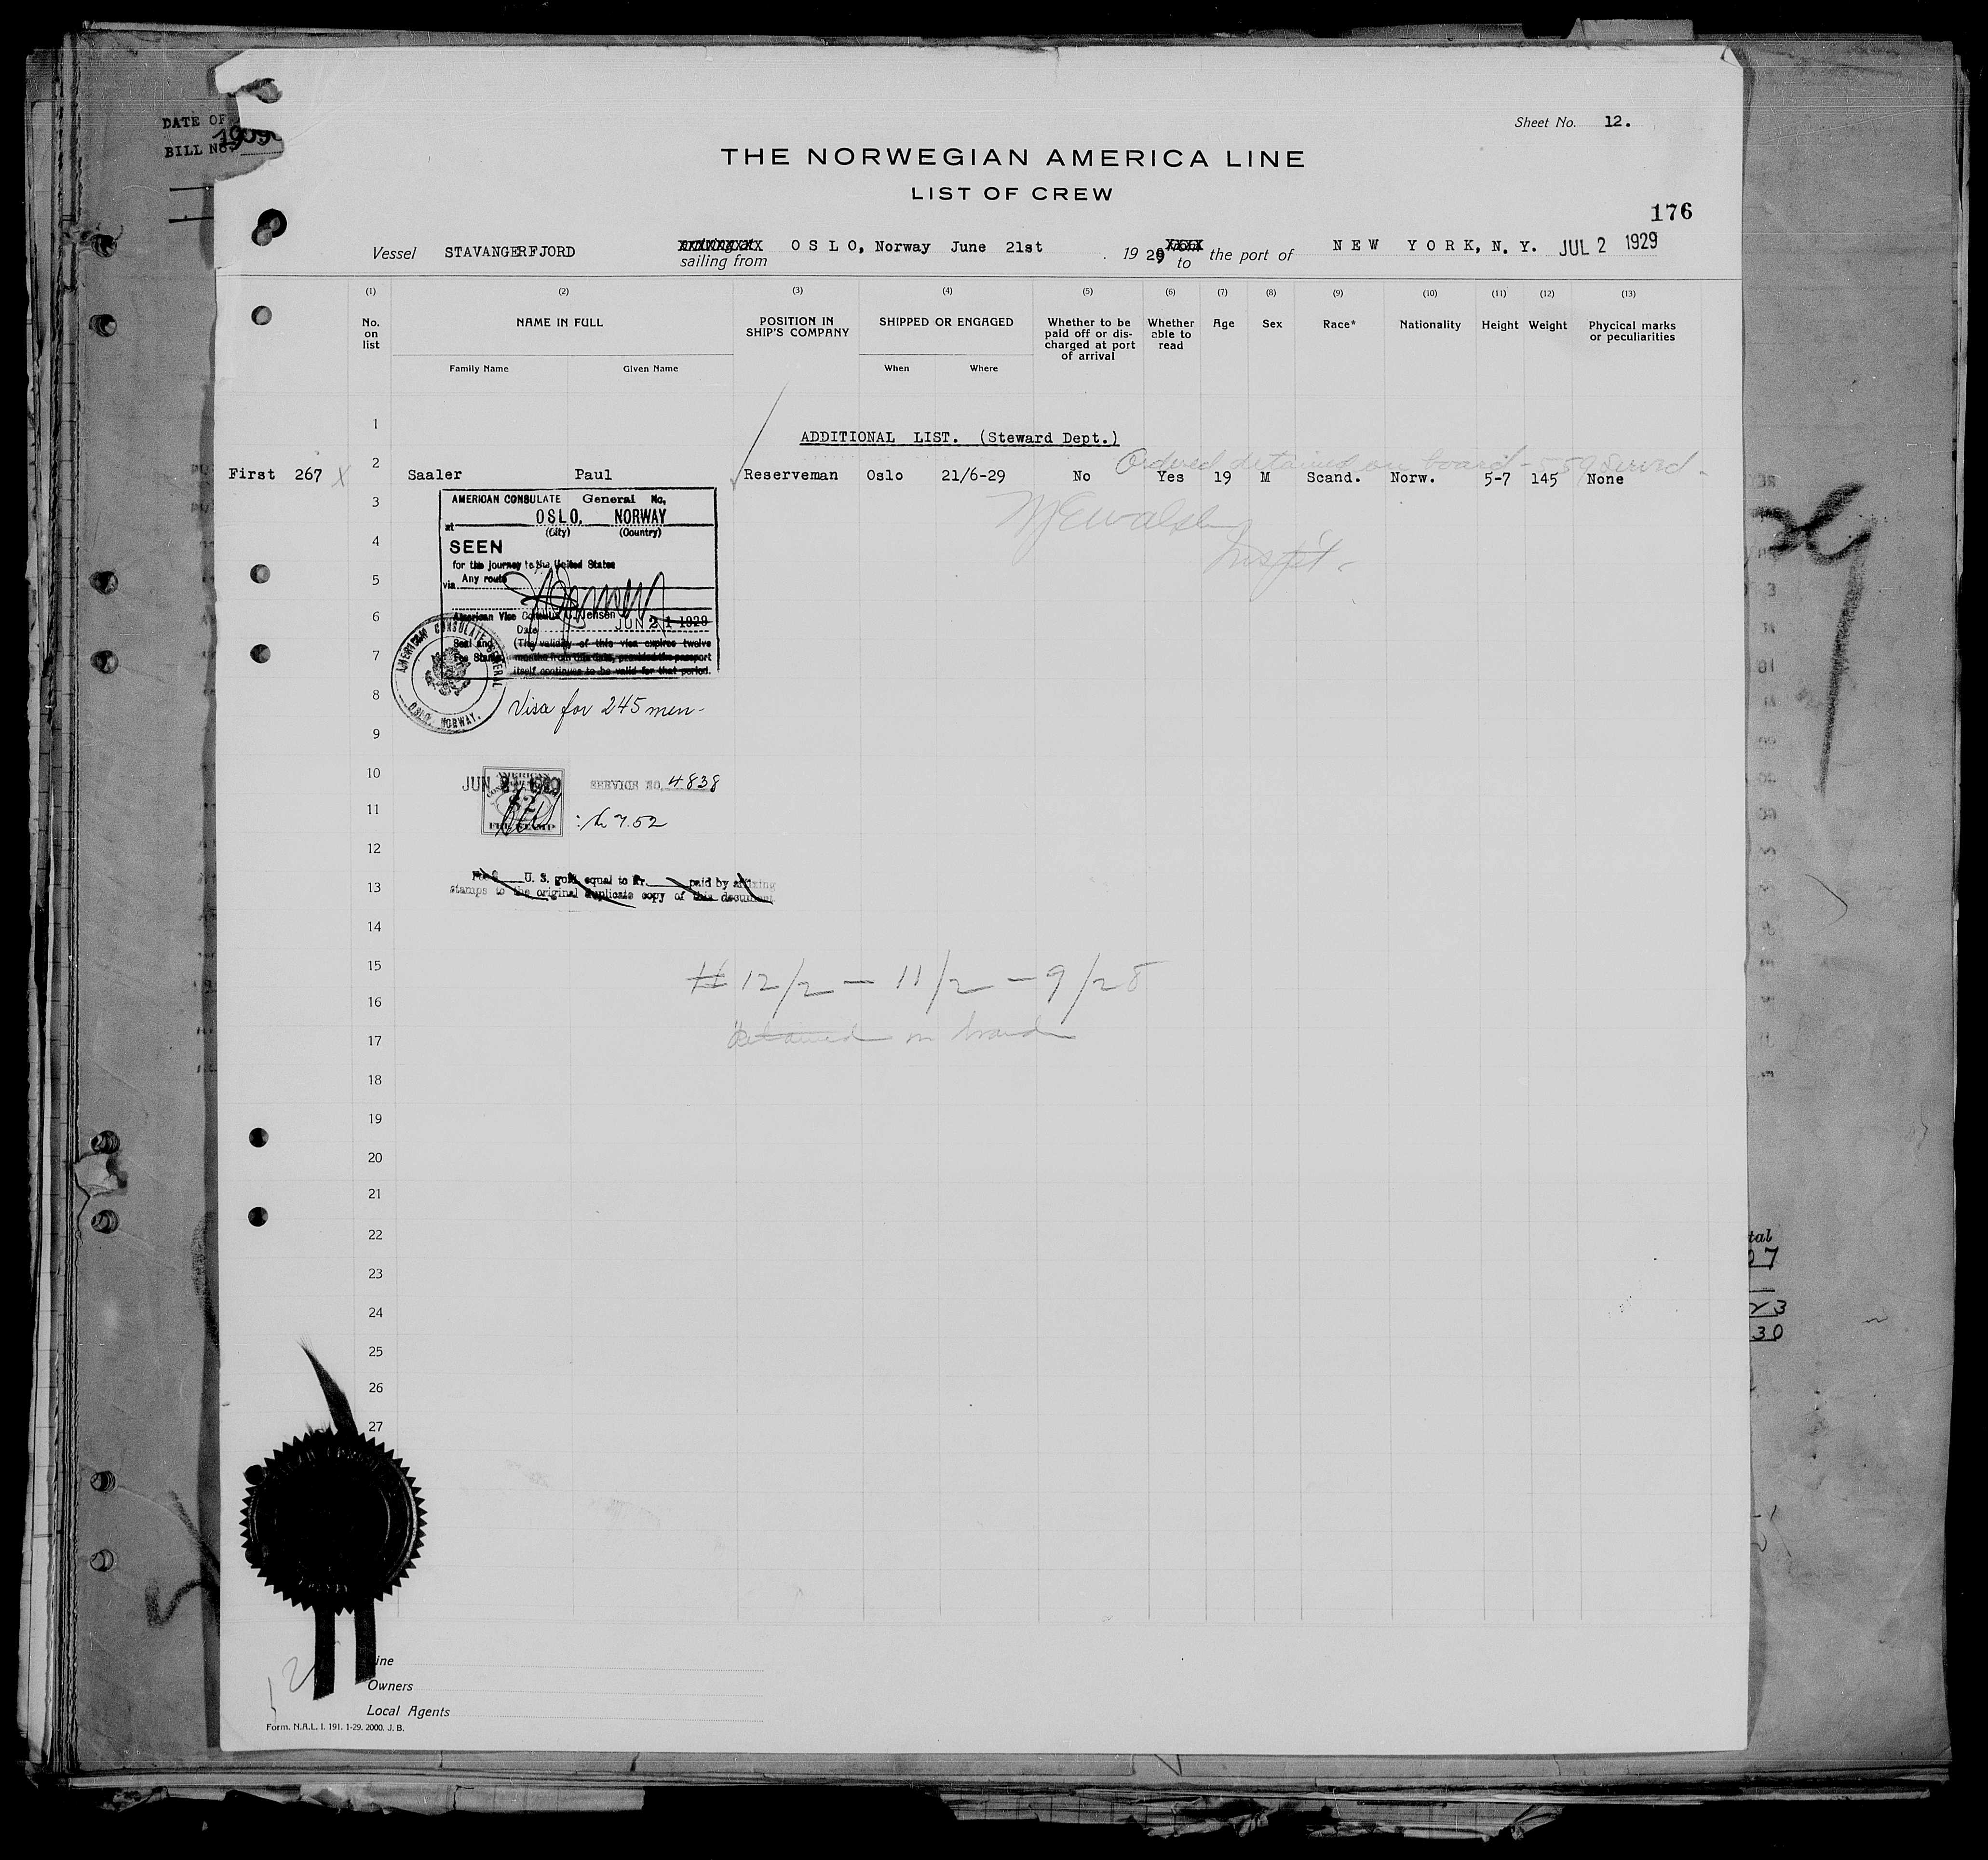 DATE OF
BILL No.
Sheet No. 12.
THE NORWEGIAN AMERICA LINE
LIST OF CREW
176
Vessel STAVANGERFJORD sailing from OSLO, Norway June 21st 1929 to the port of NEW YORK, N.Y. JUL 2 1929
(1) (2) (3) (4) (5) (6) (7) (8) (9) (10) (11) (12) (13)
No. on list NAME IN FULL POSITION IN SHIP'S COMPANY SHIPPED OR ENGAGED Whether to be paid off or discharged at port of arrival Whether able to read Age Sex Race* Nationality Height Weight Phycical marks or peculiarities
Family Name Given Name When Where
1
ADDITIONAL LIST. (Steward Dept.)
Ordered detained on board - 559 Served -
2
First 267 X Saaler Paul Reserveman Oslo 21/6-29 No Yes 19 M Scand. Norw. 5-7 145 None
3
AMERICAN CONSULATE General No.
at OSLO, NORWAY
(City) (Country)
4
SEEN
for the journey to the United States
5
via Any route
6
American Vice Consul Jensen
Date JUN 21 1929
Seal and Fee Stamp (The validity of this visa expires twelve
7
months from this date, provided the passport
itself continues to be valid for that period.
AMERICAN CONSULATE GENERAL
OSLO, NORWAY.
8
Visa for 245 men-
9
10
JUN 21 1929 SERVICE NO. 4838
AMERICAN
FEE STAMP
11
7.52
12
U. S. gold equal to Kr. paid by affixing
13
stamps to the original duplicate copy of this document
14
15
# 12/2 - 11/2 - 9/28
16
17
Detained on board
18
19
20
21
22
23
24
25
26
27
12
Line
Owners
Local Agents
Form. N.A.L. I. 191. 1-29. 2000. J. B.